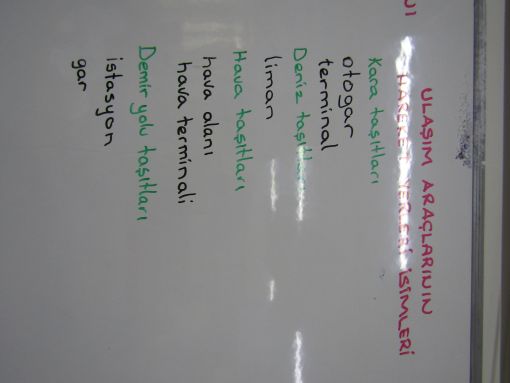 ULAŞIM ARAÇLARININ
HAREKET YERLERİ İSİMLERİ
Kara taşıtları
otogar
terminal
Deniz taşıtları
liman
Hava taşıtları
hava alanı
hava terminali
Demir yolu taşıtları
istasyon
gar